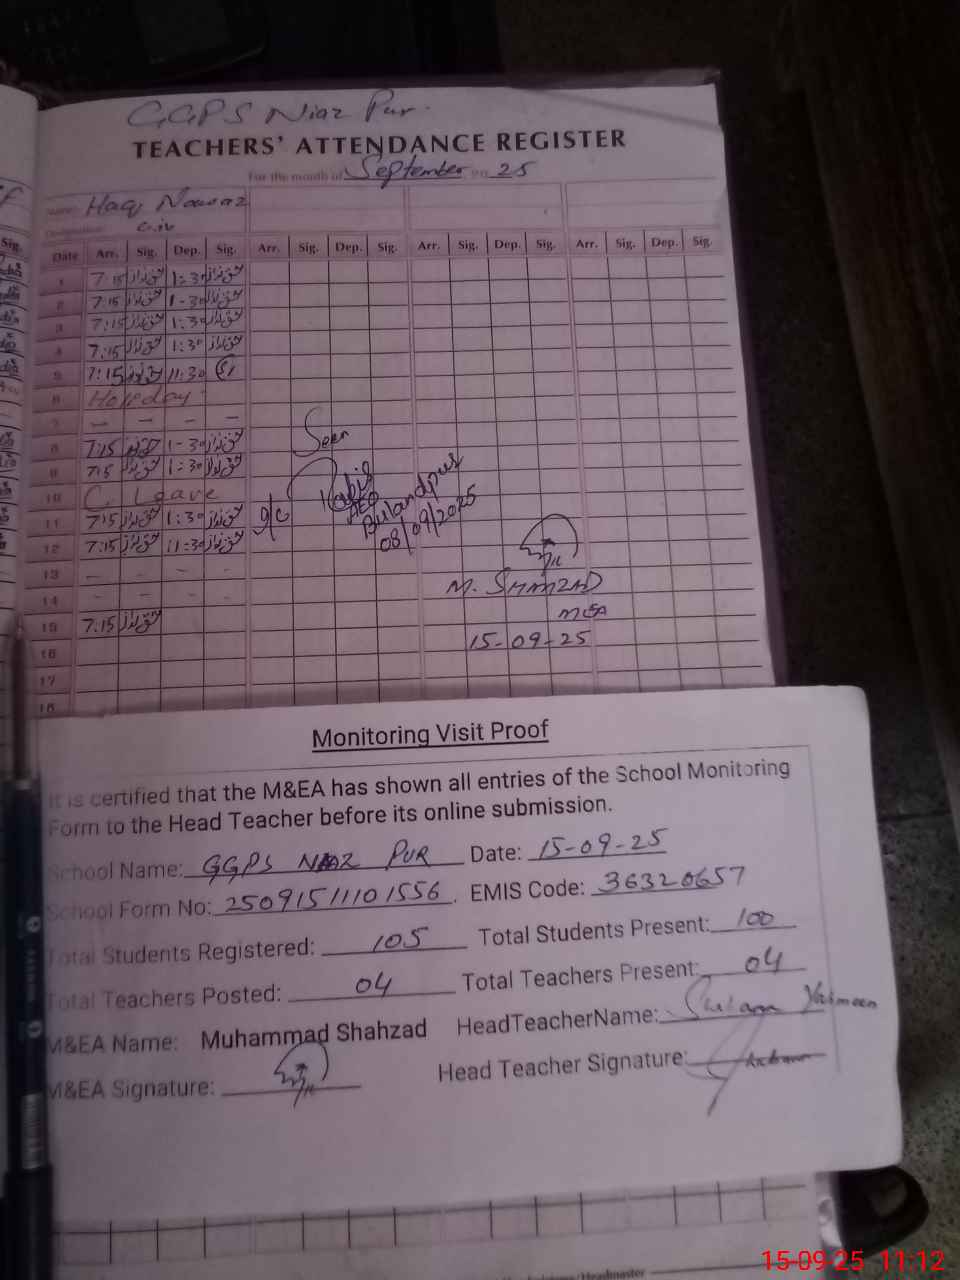 GGPS Niaz Pur.
TEACHERS' ATTENDANCE REGISTER
For the month of September 25
Name: Haq Nawaz
Designation C.iv
Date Arr. Sig. Dep. Sig. Arr. Sig. Dep. Sig. Arr. Sig. Dep. Sig. Arr. Sig. Dep. Sig.
1 7:15 حق نواز 1:30 حق نواز
2 7:15 حق نواز 1-30 حق نواز
3 7:15 حق نواز 1:30 حق نواز
4 7:15 حق نواز 1:30 حق نواز
5 7:15 حق نواز 11:30
6 Holiday
7 — — — —
8 7:15 حق نواز 1-30 حق نواز
9 7:15 حق نواز 1:30 حق نواز
10 C. Leave
11 7:15 حق نواز 1:30 حق نواز
12 7:15 حق نواز 11:30 حق نواز
13 — — — —
14 — — - -
15 7:15 حق نواز
16
17
18
Seen
AEO
Bulandpur
08/09/2025
M. SHAHZAD
MEA
15-09-25
Monitoring Visit Proof
It is certified that the M&EA has shown all entries of the School Monitoring
Form to the Head Teacher before its online submission.
School Name: GGPS NIAZ PUR Date: 15-09-25
School Form No: 2509151110 1556. EMIS Code: 36320657
Total Students Registered: 105 Total Students Present: 100
Total Teachers Posted: 04 Total Teachers Present: 04
M&EA Name: Muhammad Shahzad HeadTeacherName: Yasmeen
M&EA Signature: Head Teacher Signature:
15-09-25 11:12